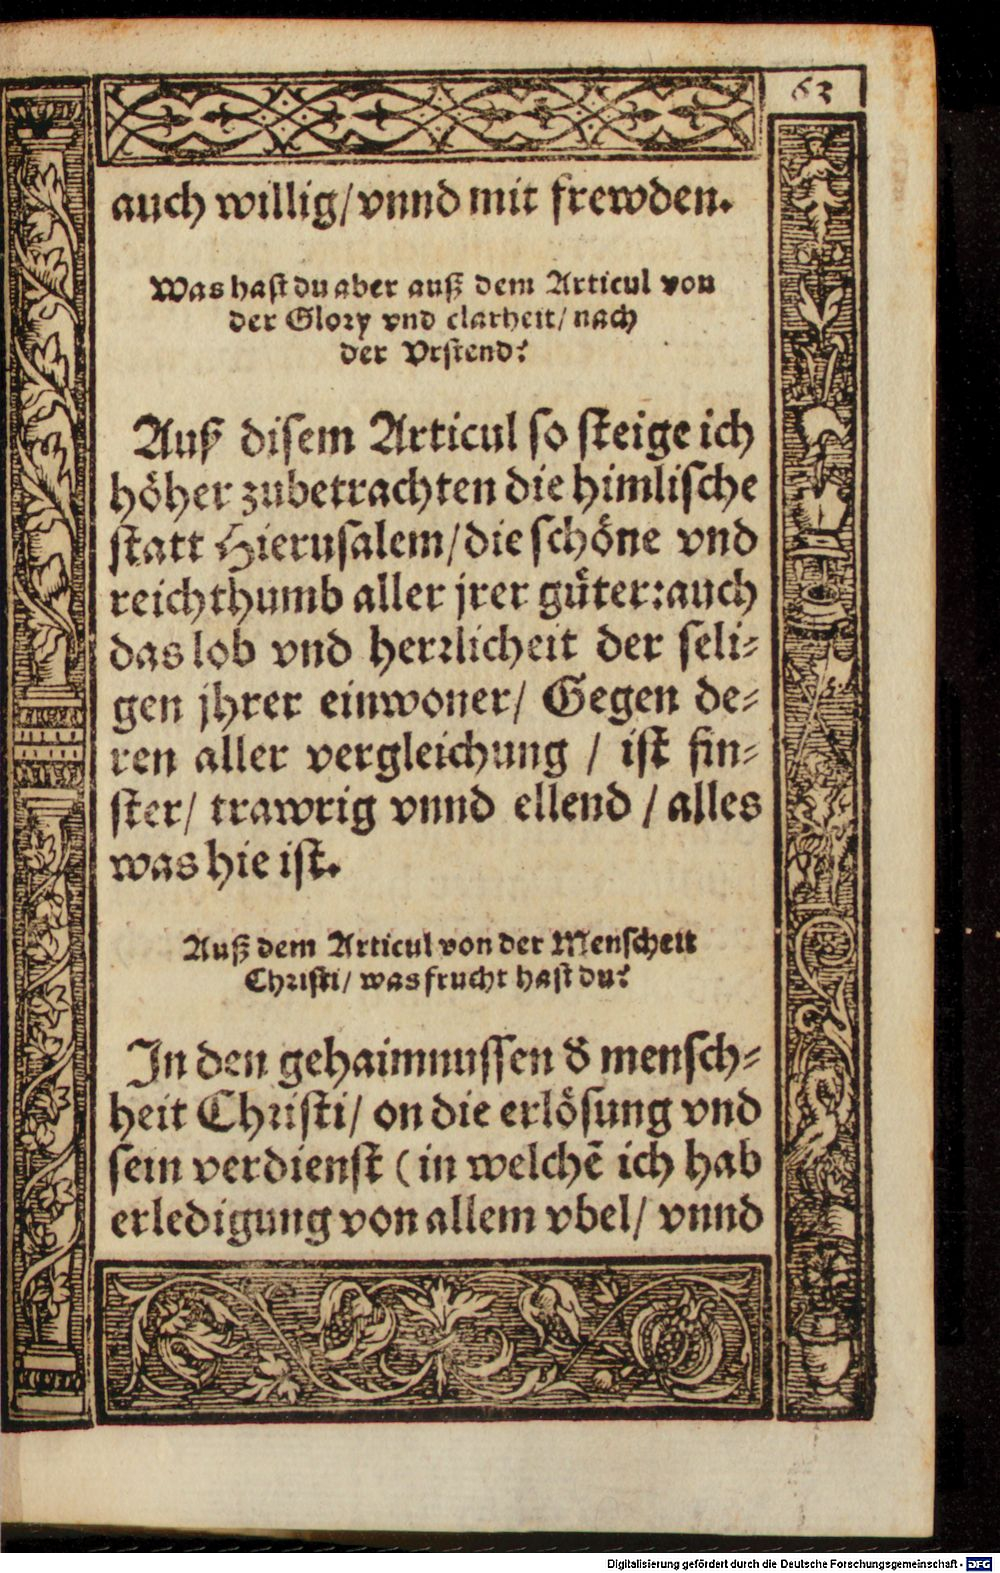 63
auch willig/ vnnd mit frewden.
Was hast du aber auß dem Articul von
der Glory vnd clarheit/ nach
der Vrstend?
Auß disem Articul so steige ich
höher zubetrachten die himlische
statt Hierusalem/ die schöne vnd
reichthumb aller jrer güter: auch
das lob vnd herrlicheit der seli-
gen jhrer einwoner/ Gegen de-
ren aller vergleichung / ist fin-
ster/ trawrig vnnd ellend / alles
was hie ist.
Auß dem Articul von der Menscheit
Christi/ was frucht hast du?
In den gehaimnussen d̕ mensch-
heit Christi/ on die erlösung vnd
sein verdienst (in welchē ich hab
erledigung von allem vbel/ vnnd
Digitalisierung gefördert durch die Deutsche Forschungsgemeinschaft - DFG